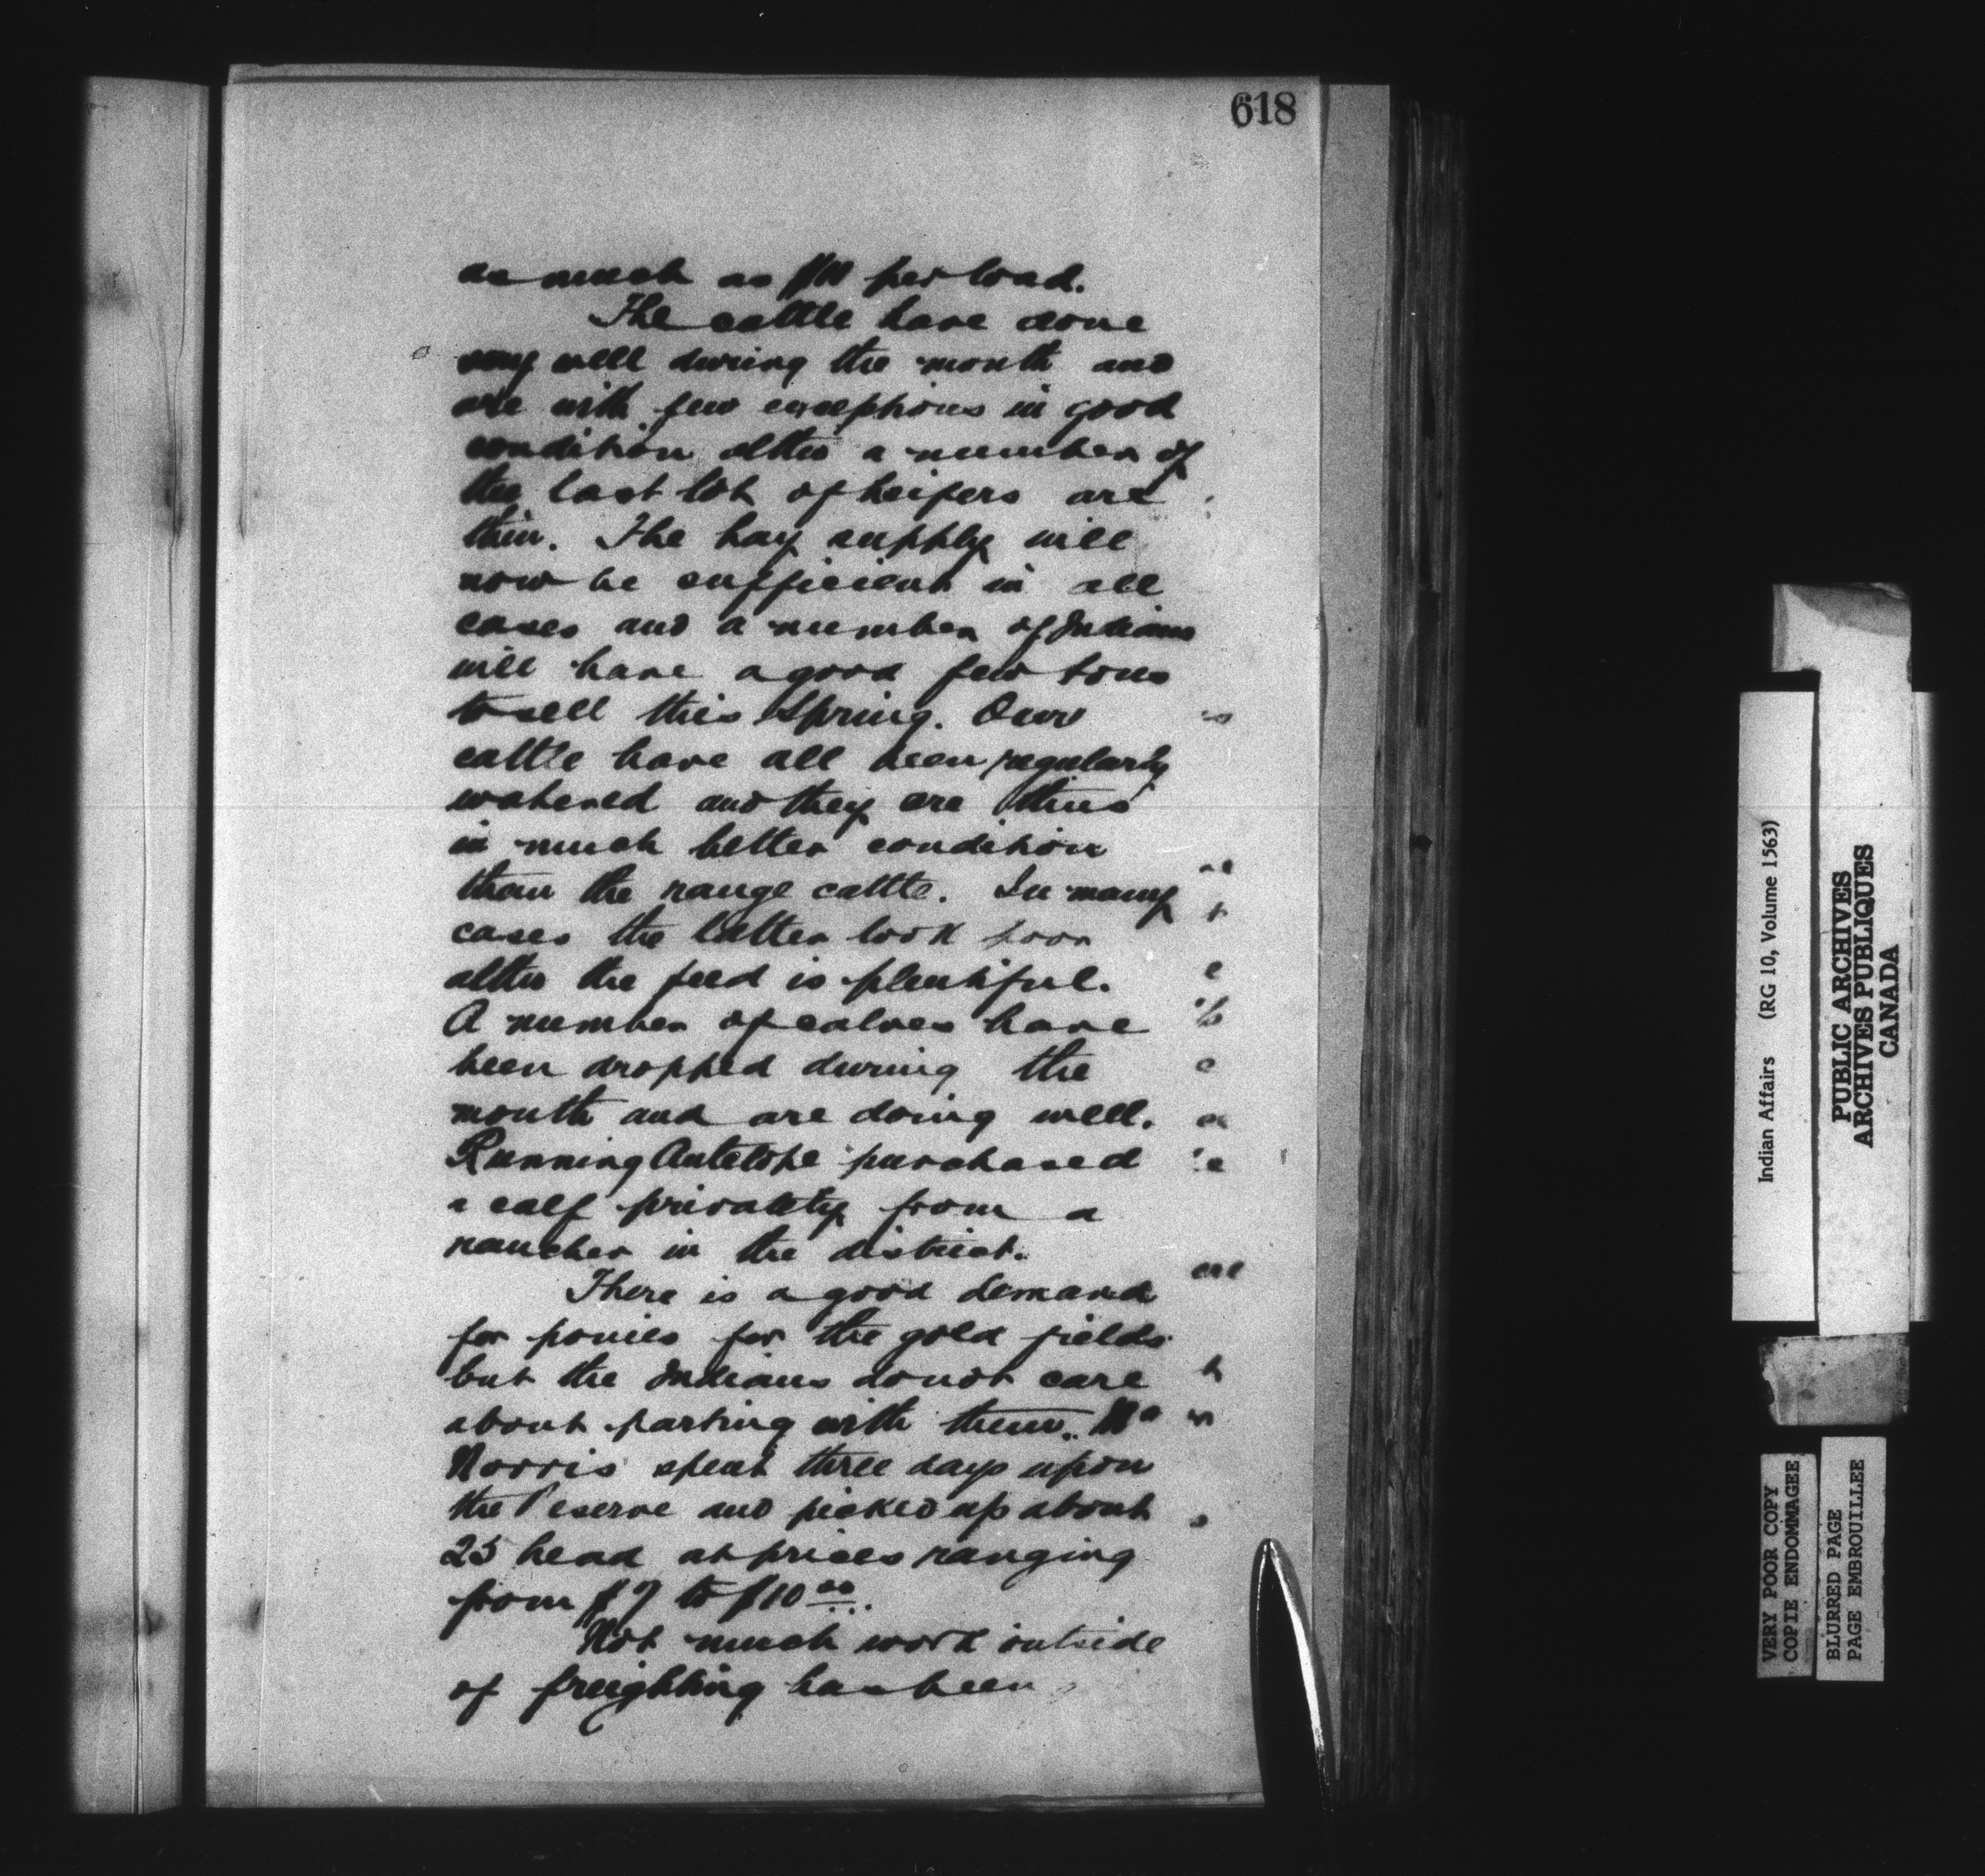 618
as much as $10 per load.
The cattle have done
very well during the month and
are with few exceptions in good
condition altho a number of
the last lot of heifers are
thin. The hay supply will
now be sufficient in all
cases and a number of Indians
will have a good few tons
to sell this Spring. Our
cattle have all been regularly
watered and they are thus
in much better condition
than the range cattle. In many
cases the latter look poor
altho the feed is plentiful.
A number of calves have
been dropped during the
month and are doing well.
Running Antelope purchased
a calf privately from a
rancher in the district.
There is a good demand
for ponies for the gold fields
but the Indians do not care
about parting with them. Mr
Norris spent three days upon
the Reserve and picked up about
25 head at prices ranging
from $7 to $10 00.
Not much work outside
of freighting has been
Indian Affairs (RG 10, Volume 1563)
PUBLIC ARCHIVES
ARCHIVES PUBLIQUES
CANADA
VERY POOR COPY
COPIE ENDOMMAGEE
BLURRED PAGE
PAGE EMBROUILLEE